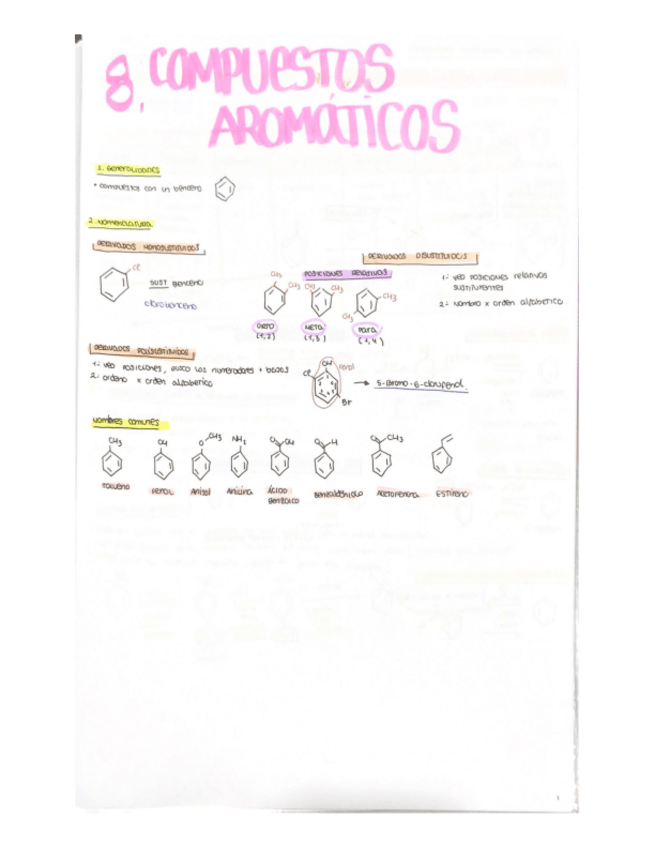 8. COMPUESTOS
AROMÁTICOS
1. GENERALIDADES
* compuestos con un benceno
2. NOMENCLATURA
DERIVADOS MONOSUSTITUIDOS
Cl
SUST BENCENO
clorobenceno
DERIVADOS DISUSTITUIDOS
POSICIONES RELATIVAS
CH3 CH3 CH3 CH3 CH3 CH3
ORTO META PARA
(1,2) (1,3) (1,4)
1º veo posiciones relativas
sustituyentes
2º nombro x orden alfabetico
DERIVADOS POLISUSTITUIDOS
1º veo posiciones, busco los numeradores + bajos
2º ordeno x orden alfabetico
OH fenol
Cl
Br
→ 5-Bromo-6-cloupenol.
NOMBRES COMUNES
CH3 OH O CH3 NH2 O OH O H O CH3
TOLUENO FENOL Anisol Anilina ÁCIDO BENZOICO BENZALDEHIDO ACETOFENONA ESTIRENO
1